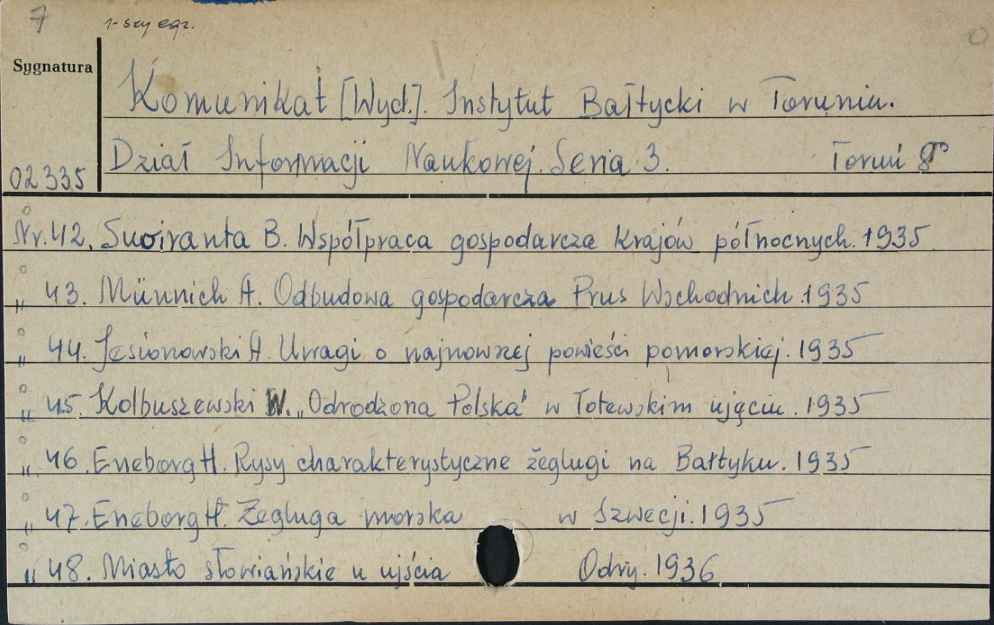 7 1-szy egz.
Sygnatura
Komunikat [Wyd.]. Instytut Bałtycki w Toruniu.
Dział Informacji Naukowej. Seria 3. Toruń 8°
02335
Nr. 42. Suviranta B. Współpraca gospodarcza krajów północnych. 1935
" 43. Münnich A. Odbudowa gospodarcza Prus Wschodnich. 1935
" 44. Jesionowski A. Uwagi o najnowszej powieści pomorskiej. 1935
" 45. Kolbuszewski W. „Odrodzona Polska" w łotewskim ujęciu. 1935
" 46. Eneborg H. Rysy charakterystyczne żeglugi na Bałtyku. 1935
" 47. Eneborg H. Żegluga morska w Szwecji. 1935
" 48. Miasto słowiańskie u ujścia Odry. 1936